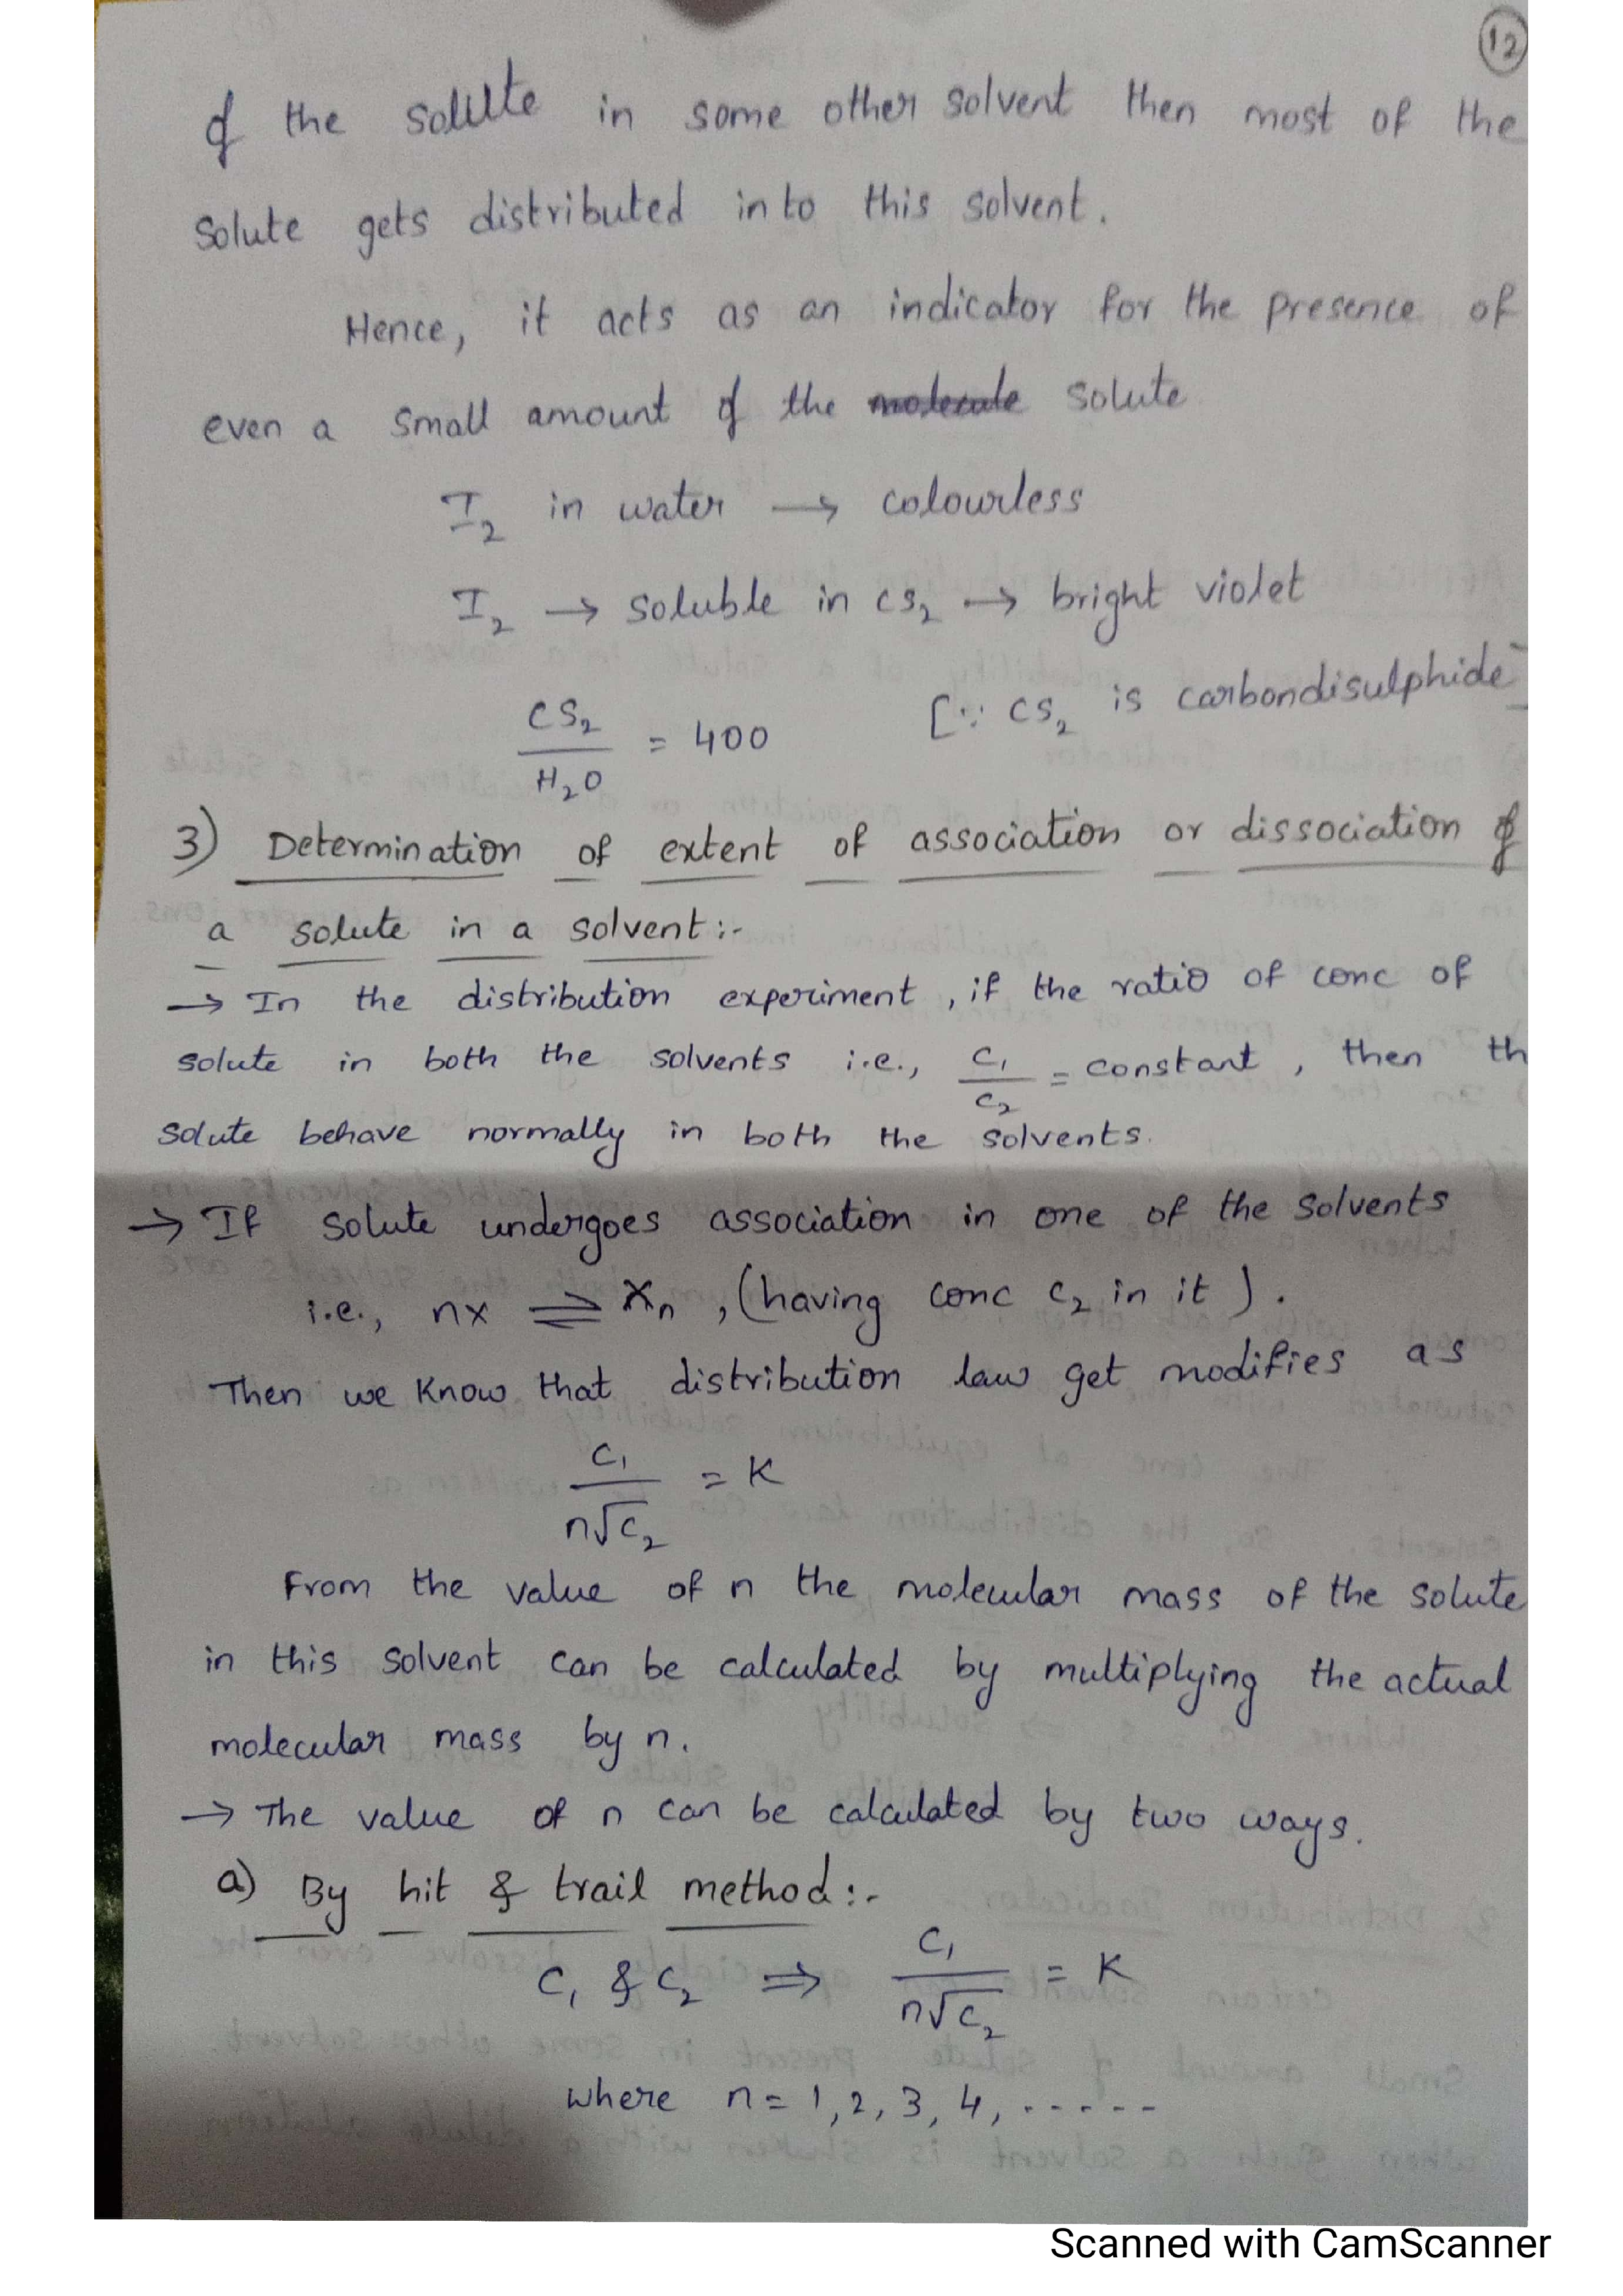 12
of the solute in some other solvent then most of the
solute gets distributed into this solvent.
Hence, it acts as an indicator for the presence of
even a small amount of the molecule solute
I₂ in water → colourless
I₂ → soluble in cs₂ → bright violet
CS₂/H₂O = 400 [∵ CS₂ is carbondisulphide]
3) Determination of extent of association or dissociation of
a solute in a solvent:-
→ In the distribution experiment, if the ratio of conc of
solute in both the solvents i.e., C₁/C₂ = constant, then th
solute behave normally in both the solvents.
→ If solute undergoes association in one of the solvents
i.e., nx ⇌ xₙ, (having conc c₂ in it).
Then we know that distribution law get modifies as
C₁/n√C₂ = K
From the value of n the molecular mass of the solute
in this solvent can be calculated by multiplying the actual
molecular mass by n.
→ The value of n can be calculated by two ways.
a) By hit & trail method:-
C₁ & C₂ ⇒ C₁/n√C₂ = K
where n = 1, 2, 3, 4, -----
Scanned with CamScanner